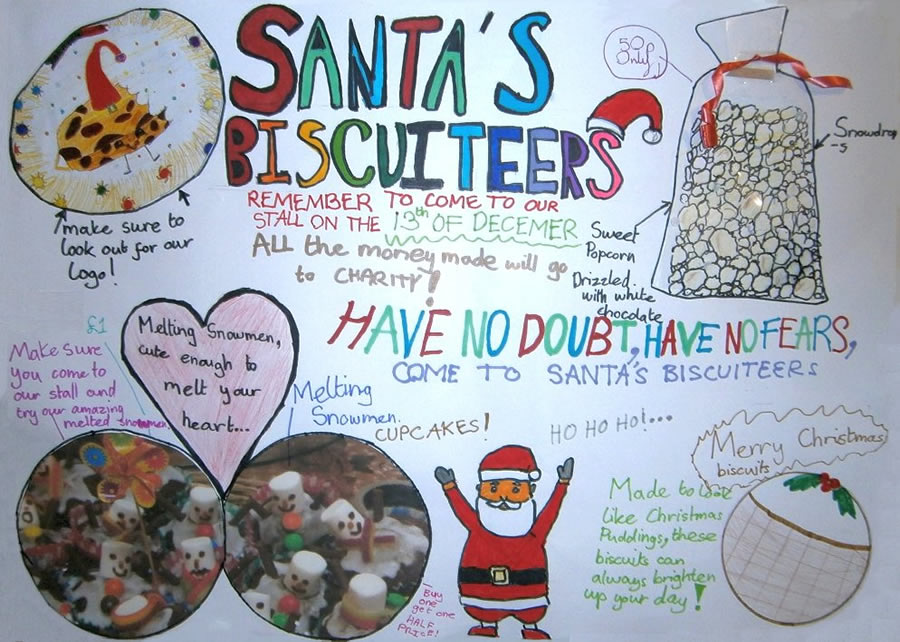 SANTA'S
BISCUITEERS
REMEMBER TO COME TO OUR
STALL ON THE 13th OF DECEMER
ALL the money made will go
to CHARITY!
50p
Only!
Snowdrop
-s
Sweet
Popcorn
Drizzled
with white
chocolate
make sure to
look out for our
Logo!
HAVE NO DOUBT, HAVE NO FEARS,
COME TO SANTA'S BISCUITEERS
Melting Snowmen,
cute enough to
melt your
heart...
£1
Make sure
you come to
our stall and
try our amazing
melted snowmen
Melting
Snowmen.
CUPCAKES!
HO HO HO!...
Merry Christmas
biscuits
Made to look
like Christmas
Puddings, these
biscuits can
always brighten
up your day!
Buy
one
get one
HALF
PRICE!